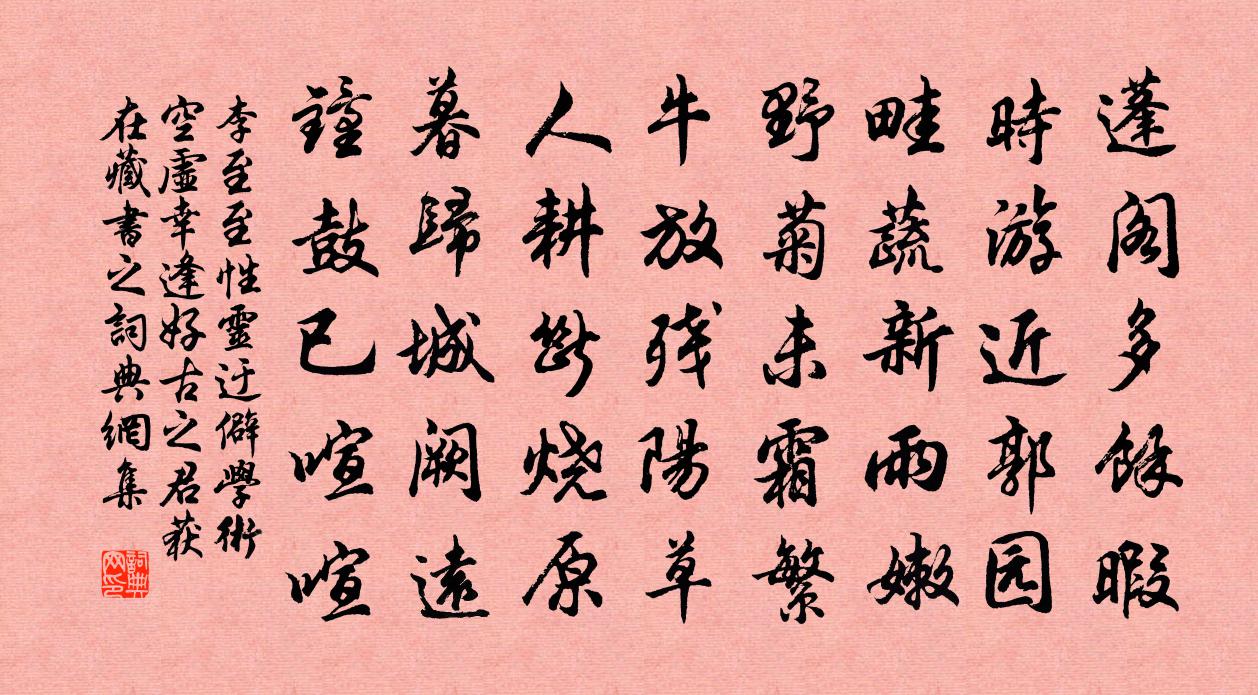 蓬阁多餘暇
時游近郭园
畦蔬新雨嫩
野菊未霜繁
牛放残陽草
人耕断烧原
暮歸城阙遠
鐘鼓已喧喧
李至至性靈迂僻學術
空虛幸逢好古之君获
在藏書之詞典網集
詞典网印